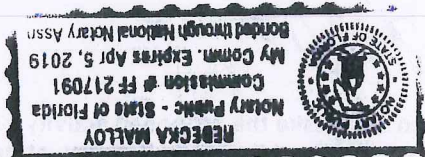 REBECKA MALLOY
Notary Public - State of Florida
Commission # FF 217091
My Comm. Expires Apr 5, 2019
Bonded through National Notary Assn.
NOTARY PUBLIC
STATE OF FLORIDA